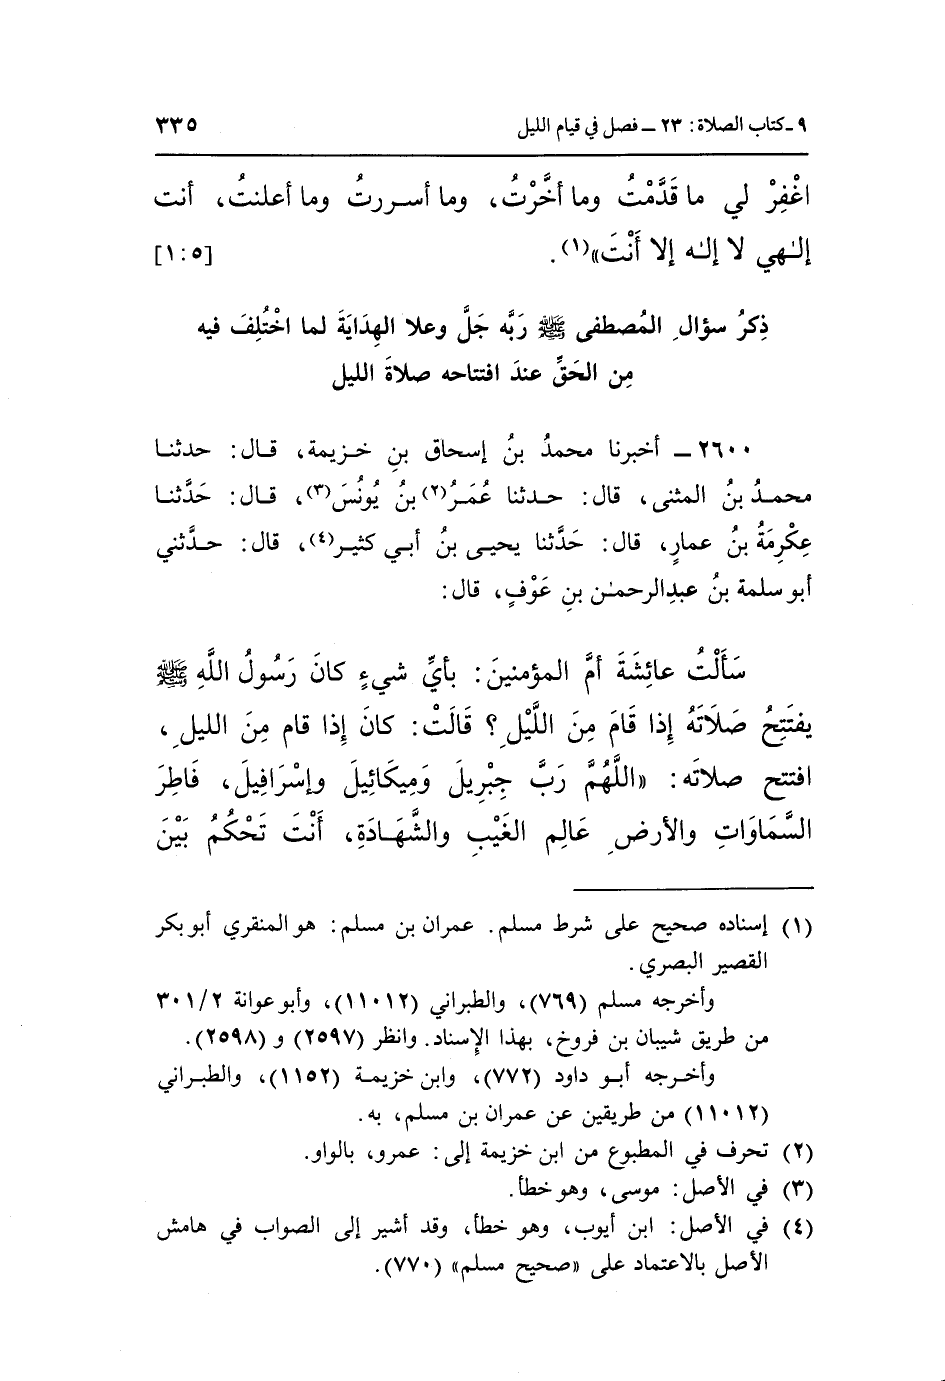 ٩ ـ كتاب الصلاة : ٢٣ ــ فصل في قيام الليل ٣٣٥
اغْفِرْ لي ما قَدَّمْتُ وما أخَّرْتُ، وما أسررتُ وما أعلنتُ، أنت
إلـٰهي لا إلـٰه إلا أَنْتَ»(١). [٥ : ١]
ذِكرُ سؤالِ المُصطفى ﷺ رَبَّه جَلَّ وعلا الهِدَايَةَ لما اخْتُلِفَ فيه
مِن الحَقِّ عندَ افتتاحه صلاةَ الليل
٢٦٠٠ ــ أخبرنا محمدُ بنُ إسحاق بنِ خزيمة، قال: حدثنا
محمدُ بنُ المثنى، قال: حدثنا عُمَرُ(٢) بنُ يُونُسَ(٣)، قال: حَدَّثنا
عِكْرِمَةُ بنُ عمارٍ، قال: حَدَّثنا يحيى بنُ أبي كثير(٤)، قال: حدَّثني
أبو سلمة بنُ عبدِالرحمـٰن بنِ عَوْفٍ، قال:
سَأَلْتُ عائِشَةَ أمَّ المؤمنينَ: بأيِّ شيءٍ كانَ رَسُولُ اللَّهِ ﷺ
يفتَتِحُ صَلَاتَهُ إذا قَامَ مِنَ اللَّيْلِ؟ قَالَتْ: كانَ إذا قام مِنَ الليلِ،
افتتح صلاتَه: «اللَّهُمَّ رَبَّ جِبْرِيلَ وَمِيكَائِيلَ وإسْرَافِيلَ، فَاطِرَ
السَّمَاوَاتِ والأرضِ عَالِم الغَيْبِ والشَّهَادَةِ، أَنْتَ تَحْكُمُ بَيْنَ
(١) إسناده صحيح على شرط مسلم. عمران بن مسلم: هو المنقري أبو بكر
القصير البصري.
وأخرجه مسلم (٧٦٩)، والطبراني (١١٠١٢)، وأبو عوانة ٣٠١/٢
من طريق شيبان بن فروخ، بهذا الإسناد. وانظر (٢٥٩٧) و (٢٥٩٨).
وأخرجه أبو داود (٧٧٢)، وابن خزيمة (١١٥٢)، والطبراني
(١١٠١٢) من طريقين عن عمران بن مسلم، به.
(٢) تحرف في المطبوع من ابن خزيمة إلى: عمرو، بالواو.
(٣) في الأصل: موسى، وهو خطأ.
(٤) في الأصل: ابن أيوب، وهو خطأ، وقد أشير إلى الصواب في هامش
الأصل بالاعتماد على «صحيح مسلم» (٧٧٠).